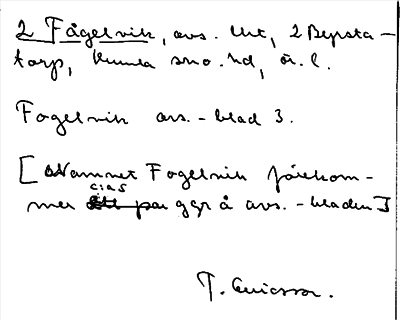 2 Fågelvik, avs. lht, 2 Bysta-
torp, Kumla sn o. hd, ör. l.
Fogelvik avs. - blad 3.
[Namnet Fogelvik förekom-
mer ett c:a 5
par ggr å avs. - bladen]
T. Ericsson.